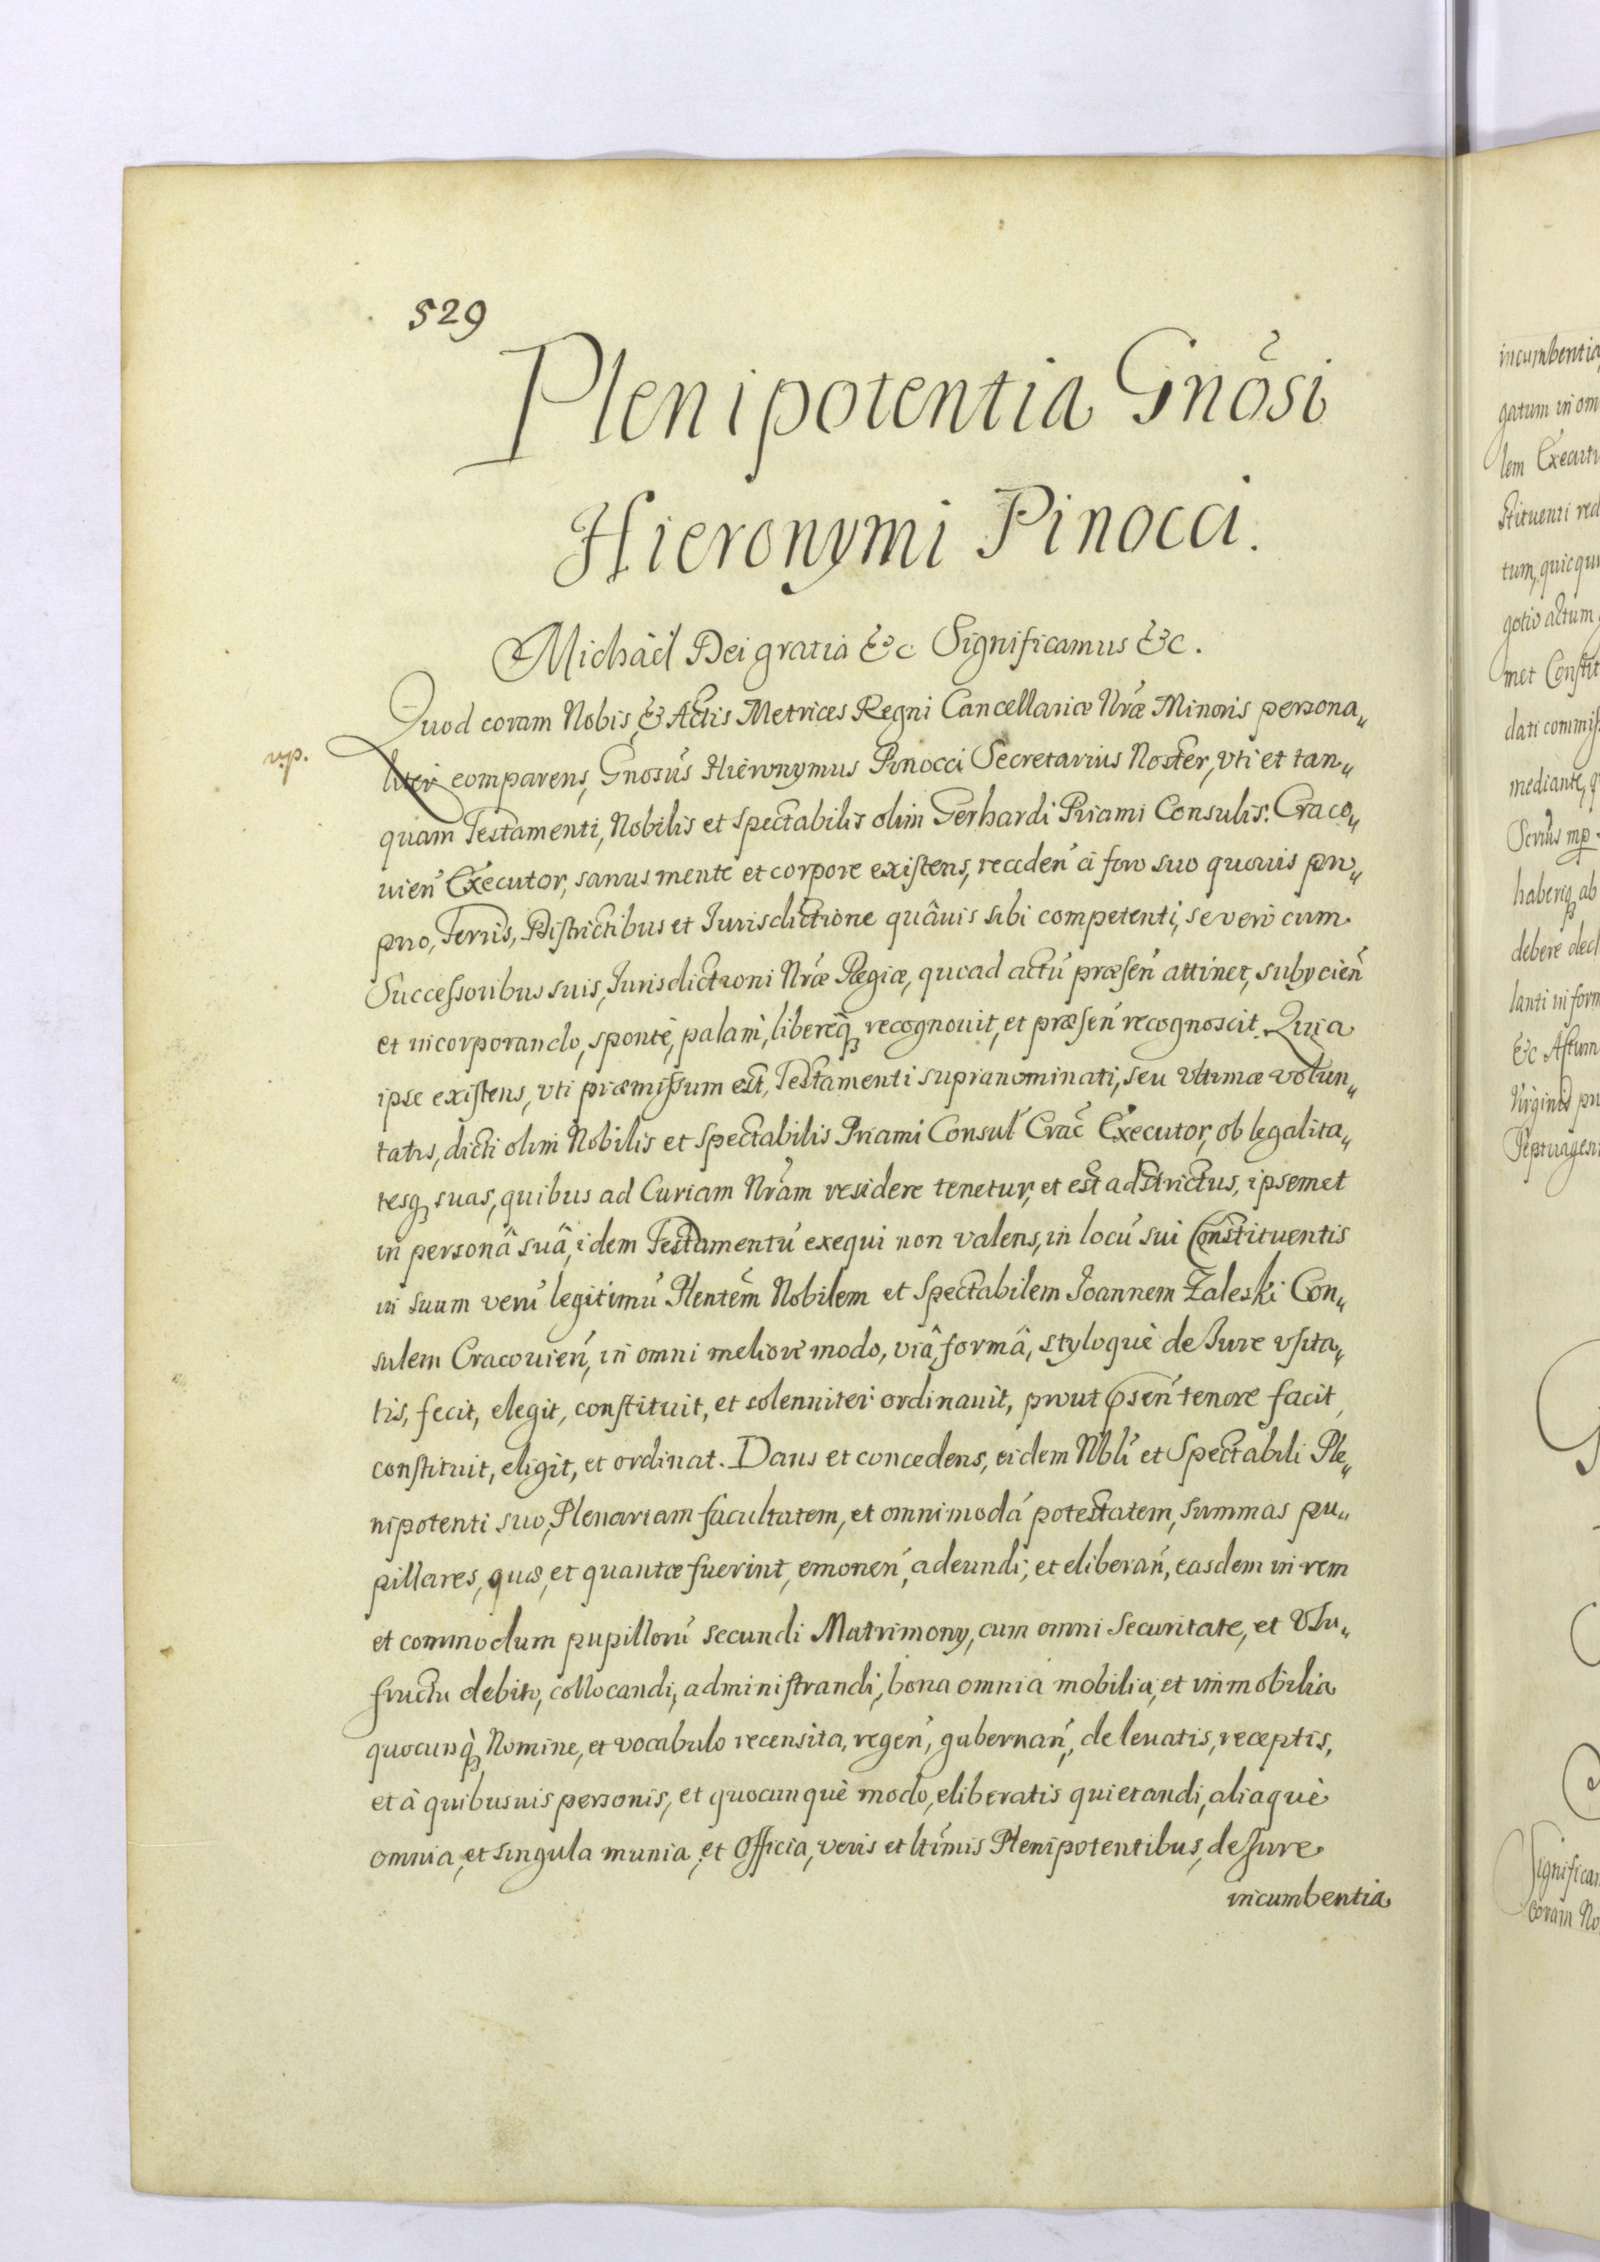 529
Plenipotentia Gnõsi
Hieronymi Pinocci.
Michâël Dei gratia &c Significamus &c.
Quod coram Nobis, & Actis Metrices Regni Cancellariæ Nr̃æ Minoris persona„
liter comparens, Gnosus Hieronymus Pinocci Secretarius Noster, vti et tan„
quam Testamenti, Nobilis et Spectabilis olim Gerhardi Priami Consulis Craco„
uien̄ Executor, sanus mente et corpore existens, receden̄ à foro suo quouis pro„
prio, Terris, Districtibus et Jurisdictione quâuis sibi competenti, se verò cum
Successoribus suis, Jurisdictioni Nr̃æ Regiæ, quoad actū præsen̄ attinet, subycien̄
et incorporando, sponte, palam, libereq̃ recognouit, et præsen̄ recognoscit. Quia
ipse existens, vti præmissum est, Testamenti supranominati, seu vltimæ volun„
tatis, dicti olim Nobilis et Spectabilis Priami Consul̄ Crac̄ Executor, ob legalita„
tesq̃ suas, quibus ad Curiam Nr̃am residere tenetur, et est adstrictus, ipsemet
in personâ suâ, idem Testamentū exequi non valens, in locū sui Constituentis
in suum verū legitimū Plentem̃ Nobilem et Spectabilem Joannem Zaleski Con„
sulem Cracouien̄, in omni meliori modo, viâ, formâ, styloquè de Jure vsita„
tis, fecit, elegit, constituit, et solenniter ordinauit, prout p̃sen̄ tenore facit,
constituit, eligit, et ordinat. Dans et concedens, eidem Nb̃li et Spectabili Ple„
nipotenti suo, Plenariam facultatem, et omnimodā potestatem, summas pu„
pillares, quæ, et quantæ fuerint, emonen̄, adeundi, et eliberan̄, easdem in rem
et commodum pupillorū secundi Matrimony, cum omni Securitate, et Vsu„
fructu debito, collocandi, administrandi, bona omnia mobilia, et immobilia
quocunq̃ Nomine, et vocabulo recensita, regen̄, gubernan̄, de leuatis, receptis,
et à quibusuis personis, et quocunquè modo, eliberatis quietandi, aliaquè
omnia, et singula munia, et Officia, veris et ltimis Plenipotentibus, de Jure
incumbentia